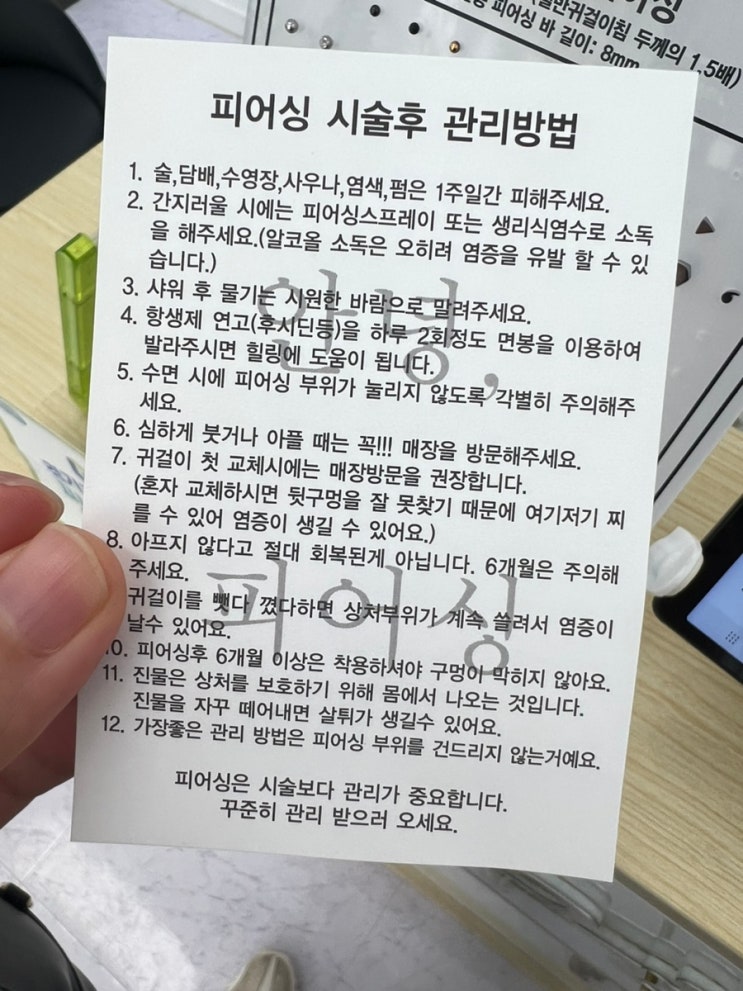 피어싱
일반귀걸이침 두께의 1.5배)
피어싱 바 길이: 8mm
피어싱 시술후 관리방법
1. 술,담배,수영장,사우나,염색,펌은 1주일간 피해주세요.
2. 간지러울 시에는 피어싱스프레이 또는 생리식염수로 소독
을 해주세요.(알코올 소독은 오히려 염증을 유발 할 수 있
습니다.)
3. 샤워 후 물기는 시원한 바람으로 말려주세요.
4. 항생제 연고(후시딘등)을 하루 2회정도 면봉을 이용하여
발라주시면 힐링에 도움이 됩니다.
5. 수면 시에 피어싱 부위가 눌리지 않도록 각별히 주의해주
세요.
6. 심하게 붓거나 아플 때는 꼭!!! 매장을 방문해주세요.
7. 귀걸이 첫 교체시에는 매장방문을 권장합니다.
(혼자 교체하시면 뒷구멍을 잘 못찾기 때문에 여기저기 찌
를 수 있어 염증이 생길 수 있어요.)
8. 아프지 않다고 절대 회복된게 아닙니다. 6개월은 주의해
주세요.
귀걸이를 뺏다 꼈다하면 상처부위가 계속 쓸려서 염증이
날수 있어요.
10. 피어싱후 6개월 이상은 착용하셔야 구멍이 막히지 않아요.
11. 진물은 상처를 보호하기 위해 몸에서 나오는 것입니다.
진물을 자꾸 떼어내면 살튀가 생길수 있어요.
12. 가장좋은 관리 방법은 피어싱 부위를 건드리지 않는거예요.
피어싱은 시술보다 관리가 중요합니다.
꾸준히 관리 받으러 오세요.
안녕,
피어싱